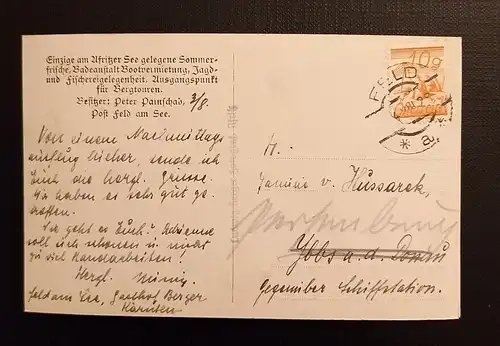 Einzige am Afritzer See gelegene Sommer-
frische, Badeanstalt Bootvermietung, Jagd-
und Fischereigelegenheit. Ausgangspunkt
für Bergtouren.
Besitzer: Peter Painschab, 3/8.
Post Feld am See.
Von einem Nachmittags
ausflug hieher, sende ich
Euch die herzl. Grüsse.
Wir haben es sehr gut ge-
troffen.
Wie geht es Euch? Adrienne
soll sich schonen u. nicht
zu viel Handarbeiten!
Herzl.
Feld am See, Gasthof Berger
Kärnten
10g
FELD
a
Familie v. Hussarek,
Persenbeug
Ybbs a. d. Donau
Gegenüber Schiffstation.